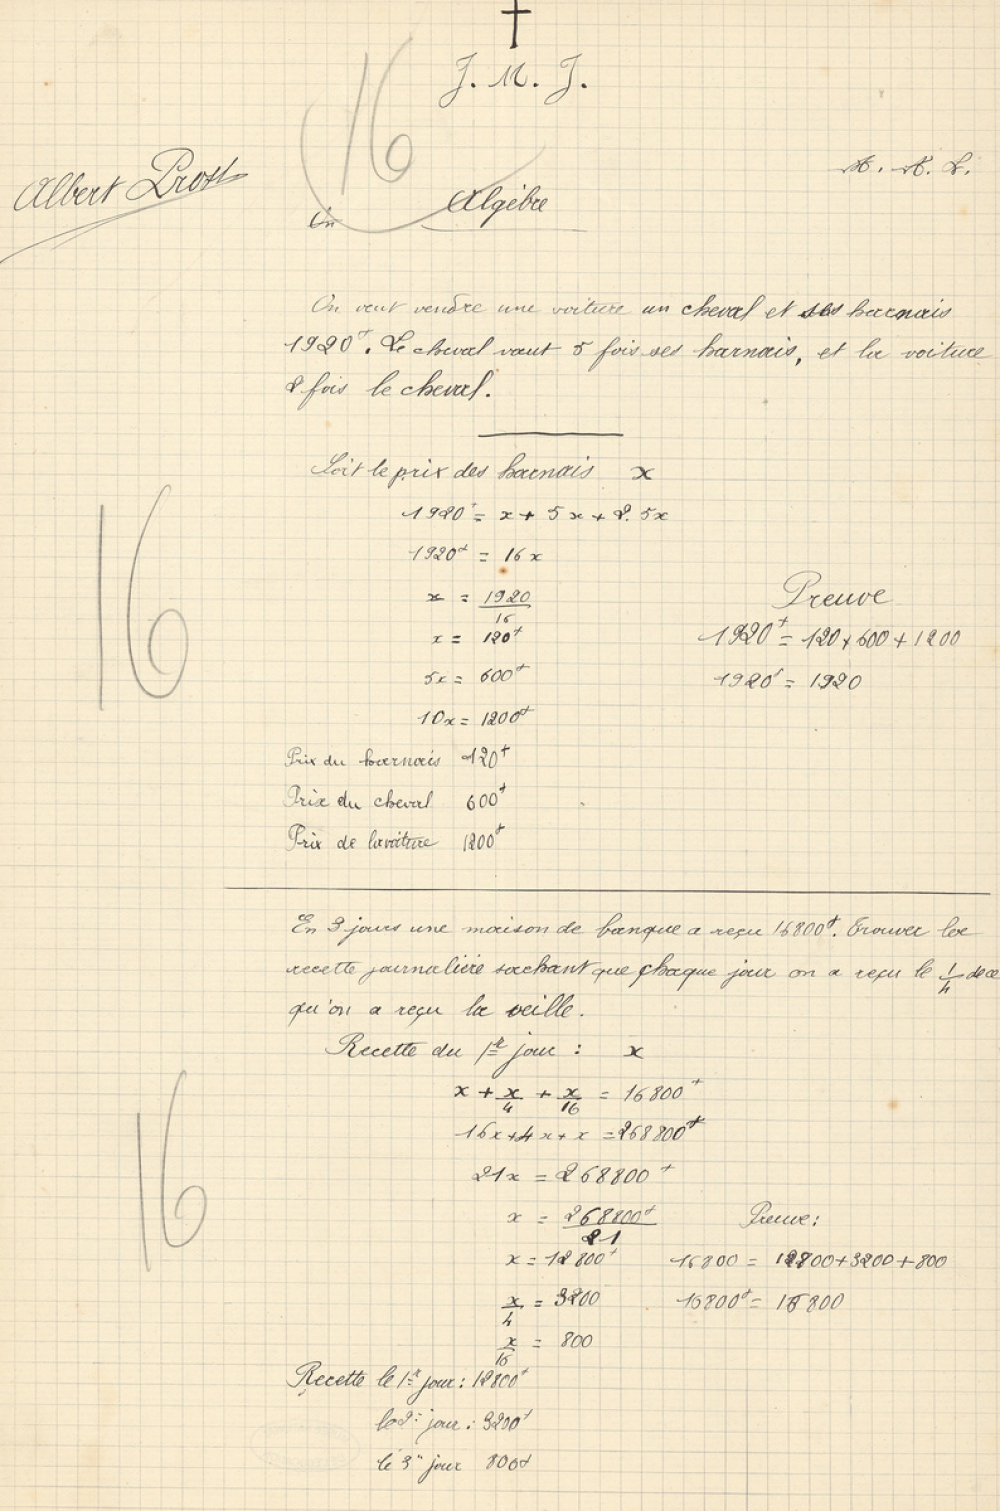 J. M. J.
16
Albert Prost
Algèbre
On veut vendre une voiture un cheval et ses harnais
1920f. Le cheval vaut 5 fois ses harnais, et la voiture
2 fois le cheval.
Soit le prix des harnais x
1920f = x + 5x + 2. 5x
1920f = 16x
x = 1920/16
x = 120f
5x = 600f
10x = 1200f
Preuve
1920f = 120 + 600 + 1200
1920f = 1920
16
Prix du harnais 120f
Prix du cheval 600f
Prix de la voiture 1200f
En 3 jours une maison de banque a reçu 16800f. Trouver la
recette journalière sachant que chaque jour on a reçu le 1/4 de ce
qu'on a reçu la veille.
Recette du 1er jour : x
x + x/4 + x/16 = 16800f
16x + 4x + x = 268800f
21x = 268800f
x = 268800f/21
x = 12800f
x/4 = 3200
x/16 = 800
Preuve :
16800 = 12800 + 3200 + 800
16800f = 16800
16
Recette le 1er jour : 12800f
le 2e jour : 3200f
le 3e jour 800f